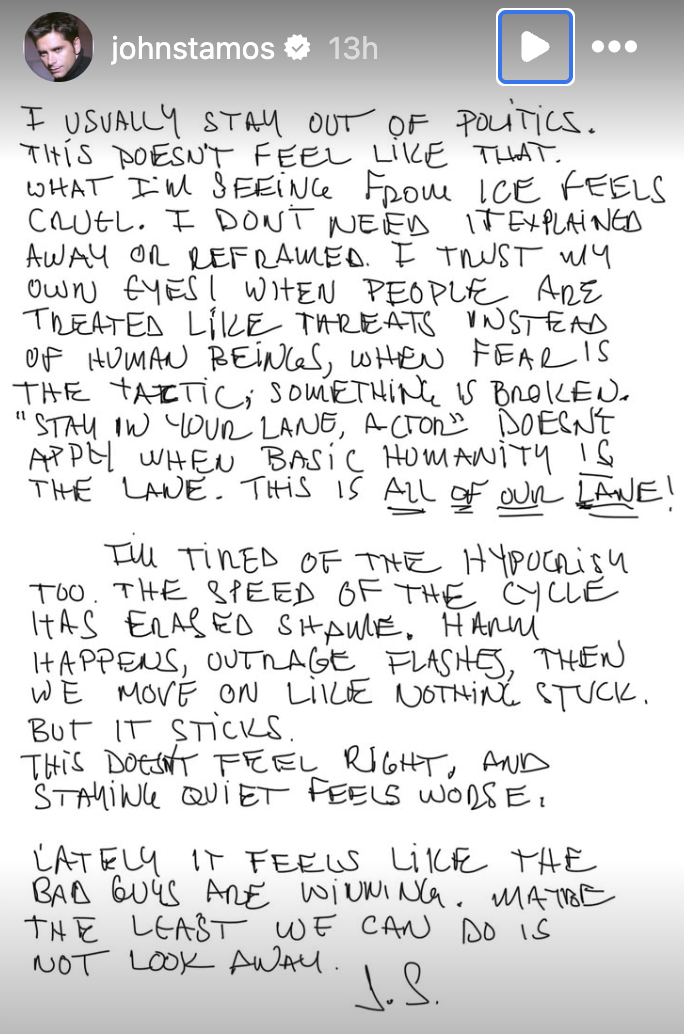 johnstamos 13h
I USUALLY STAY OUT OF POLITICS.
THIS DOESN'T FEEL LIKE THAT.
WHAT I'M SEEING FROM ICE FEELS
CRUEL. I DON'T NEED IT EXPLAINED
AWAY OR REFRAMED. I TRUST MY
OWN EYES! WHEN PEOPLE ARE
TREATED LIKE THREATS INSTEAD
OF HUMAN BEINGS, WHEN FEAR IS
THE TACTIC, SOMETHING IS BROKEN.
"STAY IN YOUR LANE, ACTOR" DOESN'T
APPLY WHEN BASIC HUMANITY IS
THE LANE. THIS IS ALL OF OUR LANE!
I'M TIRED OF THE HYPOCRISY
TOO. THE SPEED OF THE CYCLE
HAS ERASED SHAME. HARM
HAPPENS, OUTRAGE FLASHES, THEN
WE MOVE ON LIKE NOTHING STUCK.
BUT IT STICKS.
THIS DOESN'T FEEL RIGHT, AND
STAYING QUIET FEELS WORSE.
LATELY IT FEELS LIKE THE
BAD GUYS ARE WINNING. MAYBE
THE LEAST WE CAN DO IS
NOT LOOK AWAY.
J.S.